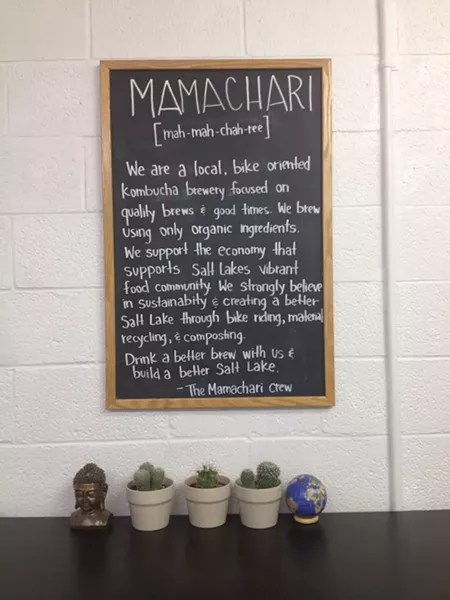 MAMACHARI
[mah-mah-chah-ree]
We are a local, bike oriented
Kombucha brewery focused on
quality brews & good times. We brew
using only organic ingredients.
We support the economy that
supports Salt Lakes vibrant
food community. We strongly believe
in sustainabity & creating a better
Salt Lake through bike riding, material
recycling, & composting.
Drink a better brew with us &
build a better Salt Lake.
- The Mamachari Crew